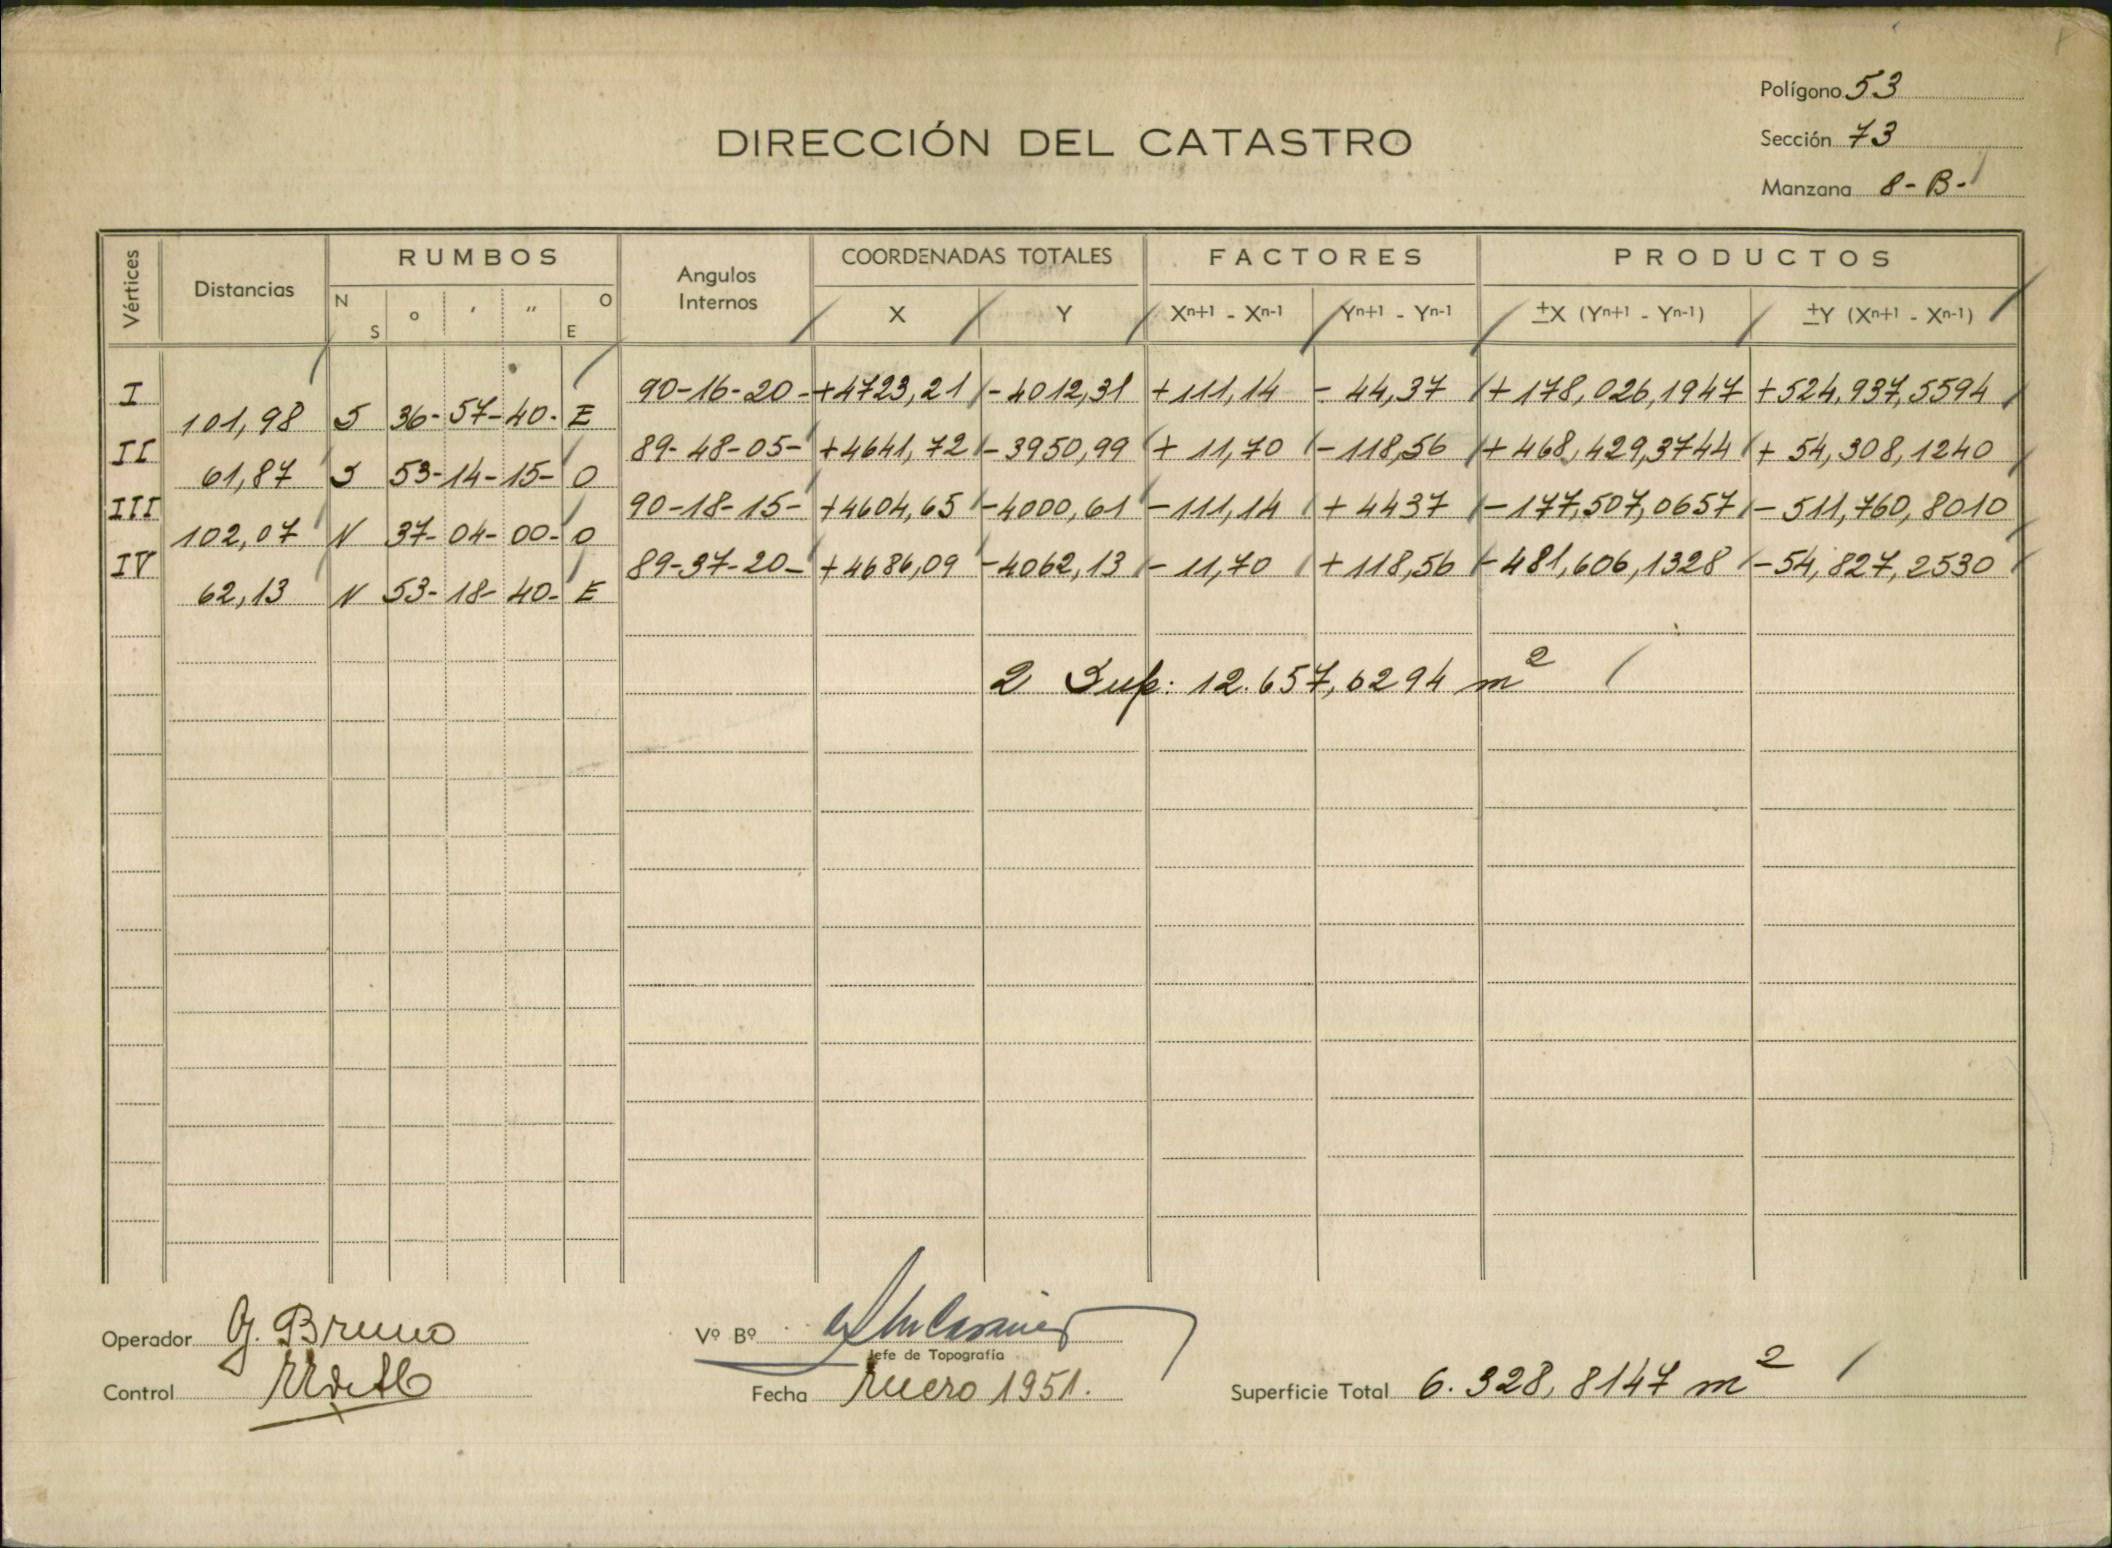 Polígono 53
DIRECCIÓN DEL CATASTRO
Sección 73
Manzana 8-B-
Vértices Distancias RUMBOS Angulos Internos COORDENADAS TOTALES FACTORES PRODUCTOS
N S o ′ ″ O E X Y Xn+1 - Xn-1 Yn+1 - Yn-1 ±X (Yn+1 - Yn-1) ±Y (Xn+1 - Xn-1)
I 90-16-20- +4723,21 -4012,31 +111,14 -44,37 +178,026,1947 +524,937,5594
101,98 S 36-57-40- E
II 89-48-05- +4641,72 -3950,99 +11,70 -118,56 +468,429,3744 +54,308,1240
61,87 S 53-14-15- O
III 90-18-15- +4604,65 -4000,61 -111,14 +4437 -177,507,0657 -511,760,8010
102,07 N 37-04-00- O
IV 89-37-20- +4686,09 -4062,13 -11,70 +118,56 -481,606,1328 -54,827,2530
62,13 N 53-18-40- E
2 Sup: 12.657,6294 m²
Operador G. Bruno Vº Bº
Jefe de Topografía
Control Fecha Enero 1951. Superficie Total 6.328,8147 m²